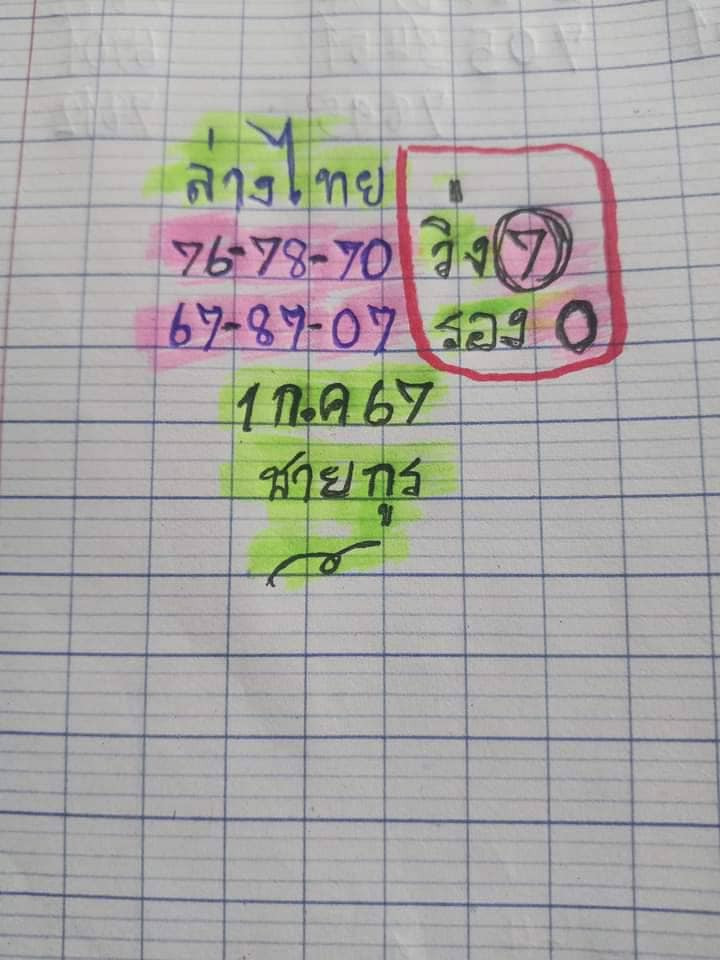 ล่างไทย
76-78-70
67-87-07
วิ่ง 7
รอง 0
1 ก.ค 67
ชายกูร